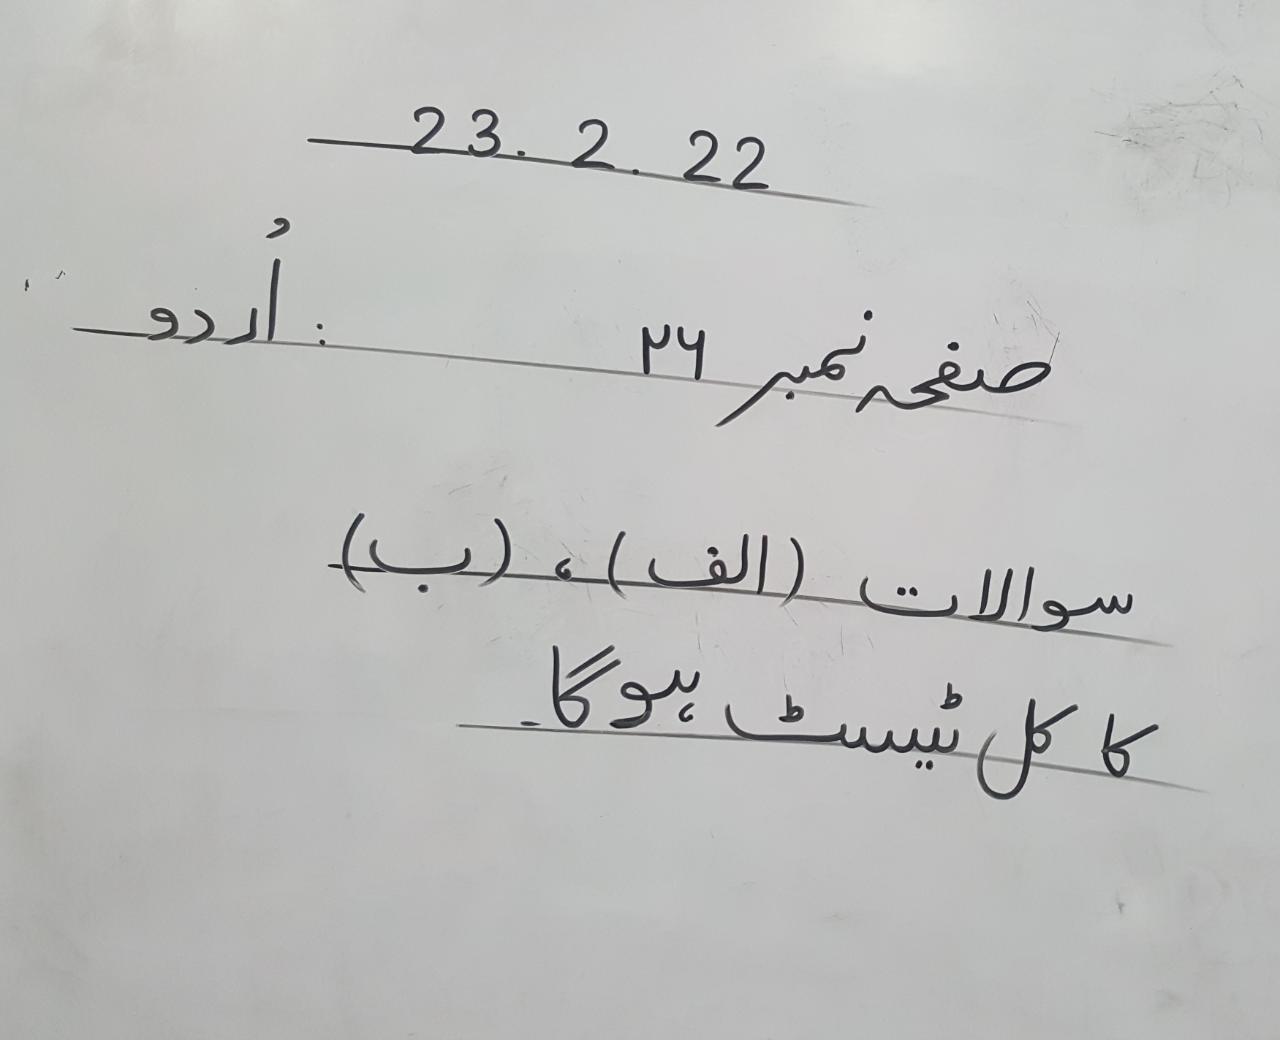 23. 2. 22
صفحہ نمبر ۲۶ : اُردو
سوالات (الف)، (ب)
کا کل ٹیسٹ ہوگا۔